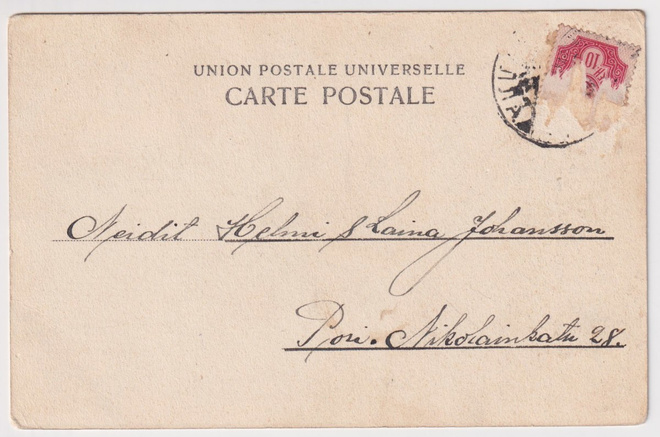 UNION POSTALE UNIVERSELLE
CARTE POSTALE
10
Neidit Helmi & Laina Johansson
Pori. Nikolainkatu 28.